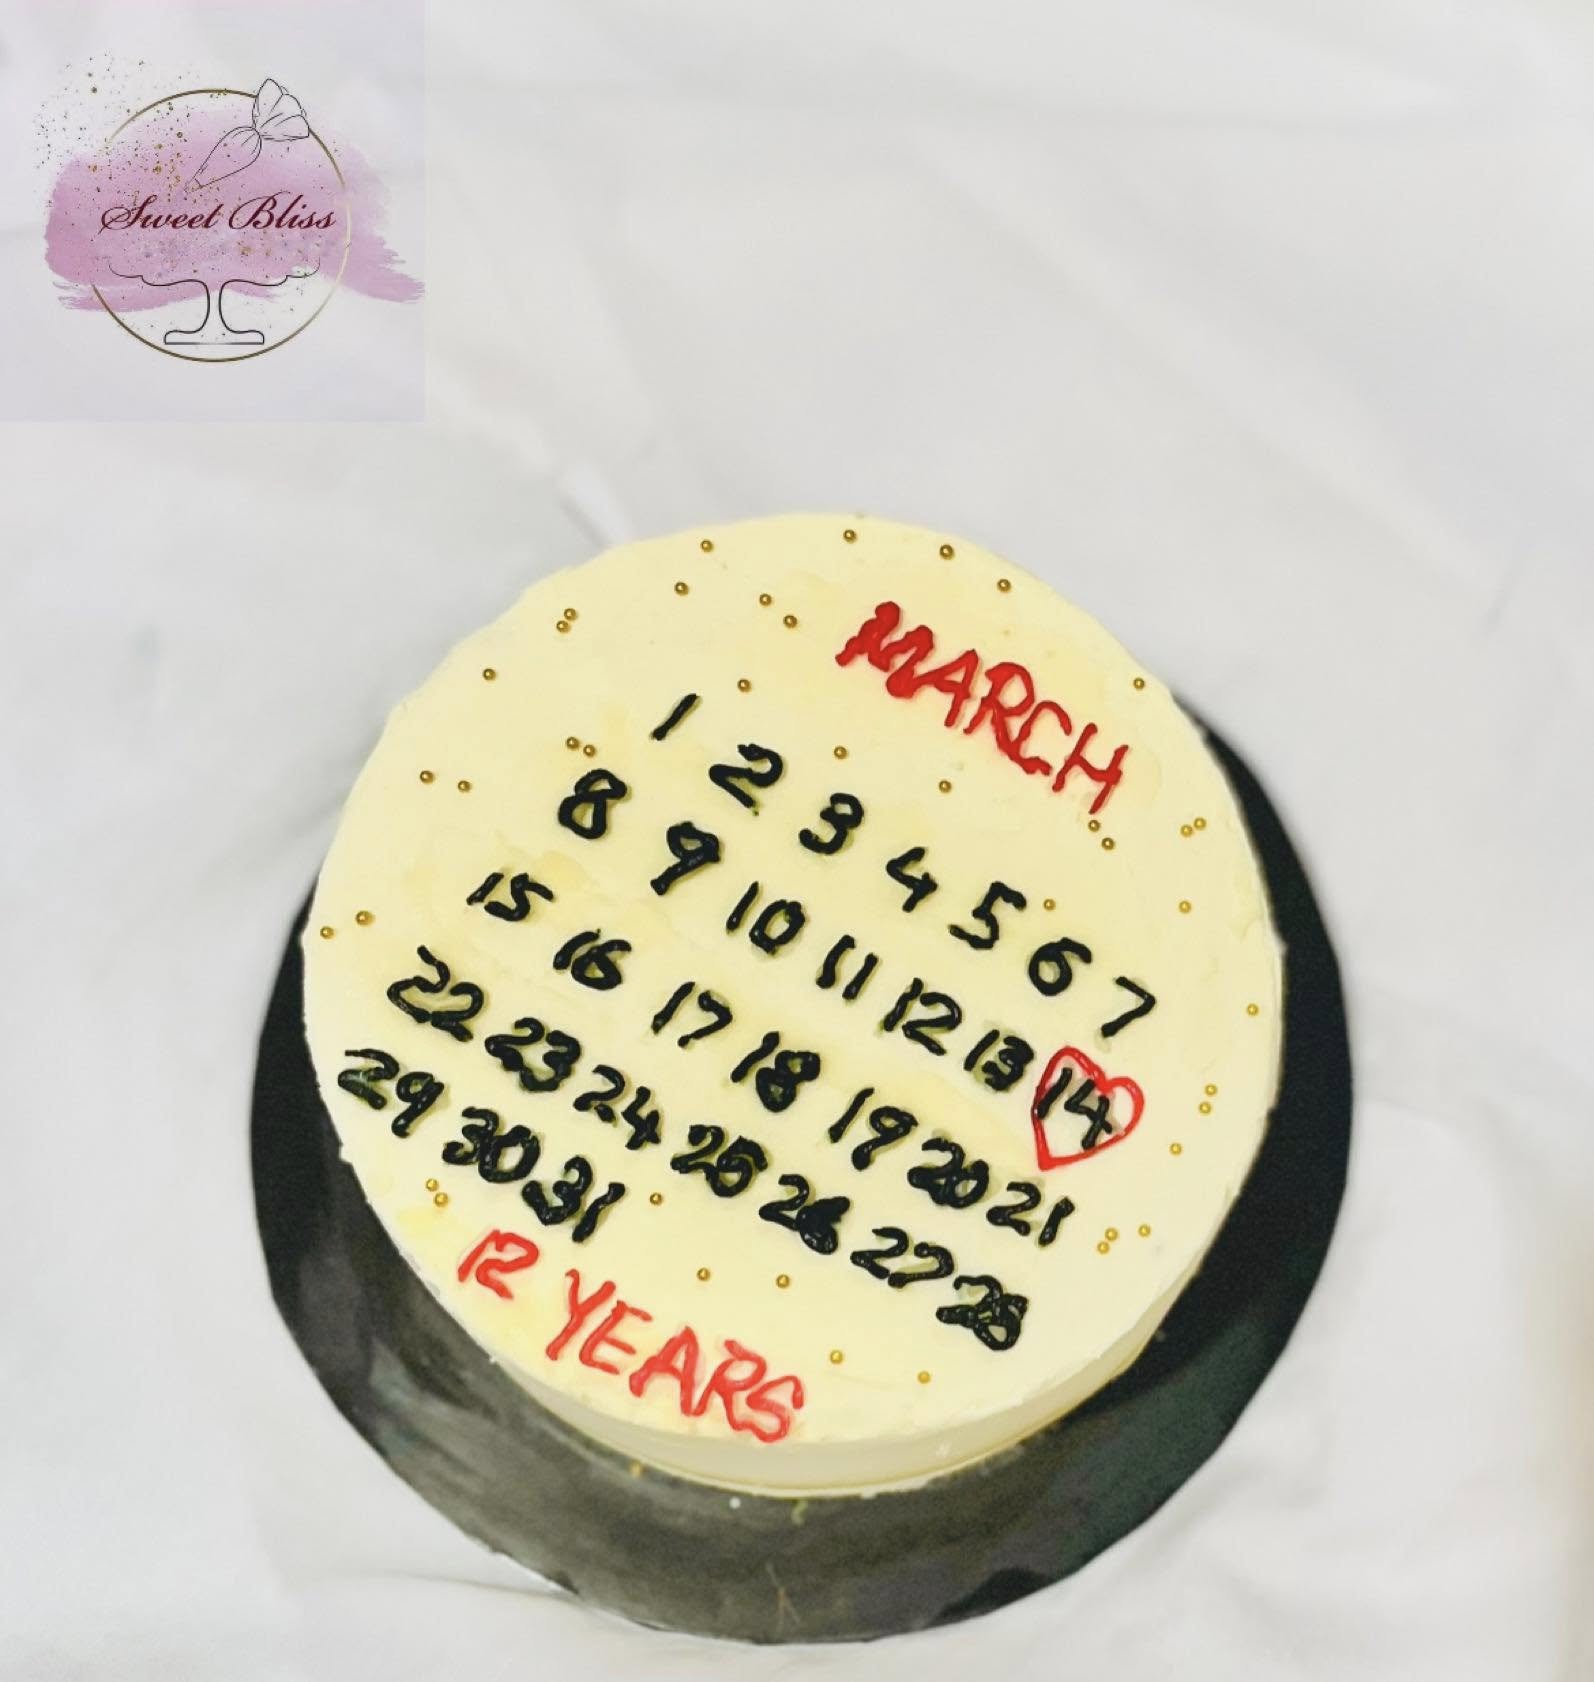 Sweet Bliss
MARCH
1 2 3 4 5 6 7
8 9 10 11 12 13 14
15 16 17 18 19 20 21
22 23 24 25 26 27 28
29 30 31
12 YEARS